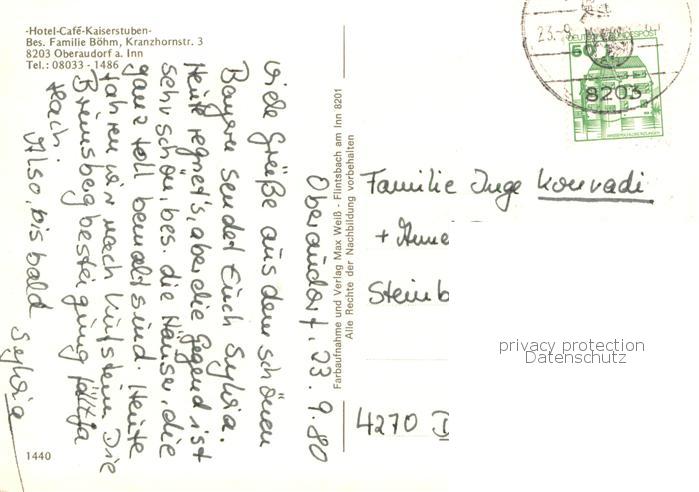 -Hotel-Café-Kaiserstuben-
Bes. Familie Böhm, Kranzhornstr. 3
8203 Oberaudorf a. Inn
Tel.: 08033 - 1486
Oberaudorf, 23.9.80
Viele Grüße aus dem schönen
Bayern sendet Euch Sylvia.
Heute regnet's, aber die Gegend ist
sehr schön, bes. die Häuser, die
ganz toll bemalt sind. Heute
fahren wir nach Kufstein. Die
besteigung fällt ja
flach.
Also, bis bald
Sylvia
1440
Farbaufnahme und Verlag Max Weiß - Flintsbach am Inn 8201
Alle Rechte der Nachbildung vorbehalten
23.-9.
DEUTSCHE BUNDESPOST
50
8203
WASSERSCHLOSS INZLINGEN
Familie Inge Konradi
+ Anne
Steinb
4270 D
privacy protection
Datenschutz